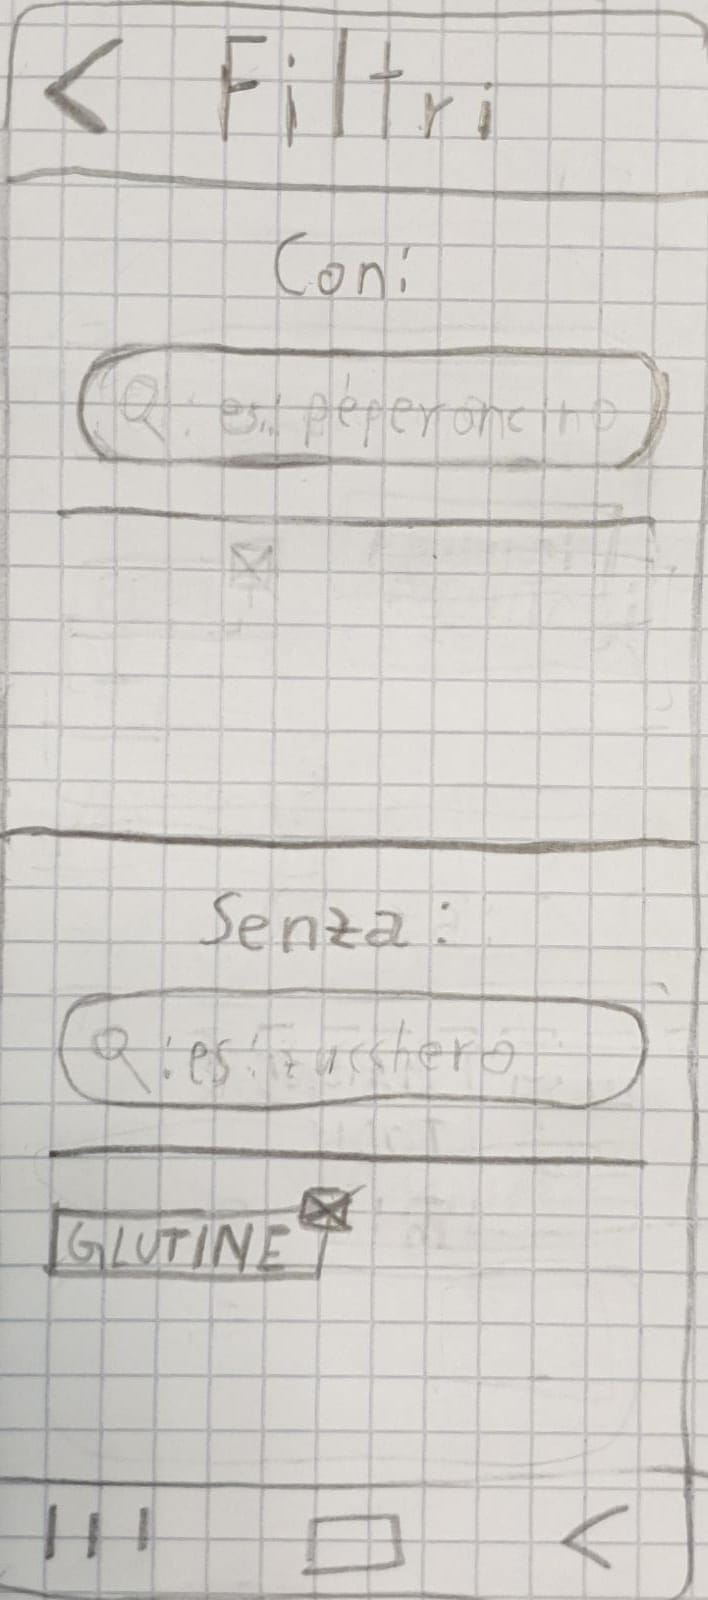 < Filtri
Con:
es: peperoncino
Senza:
es: zucchero
GLUTINE